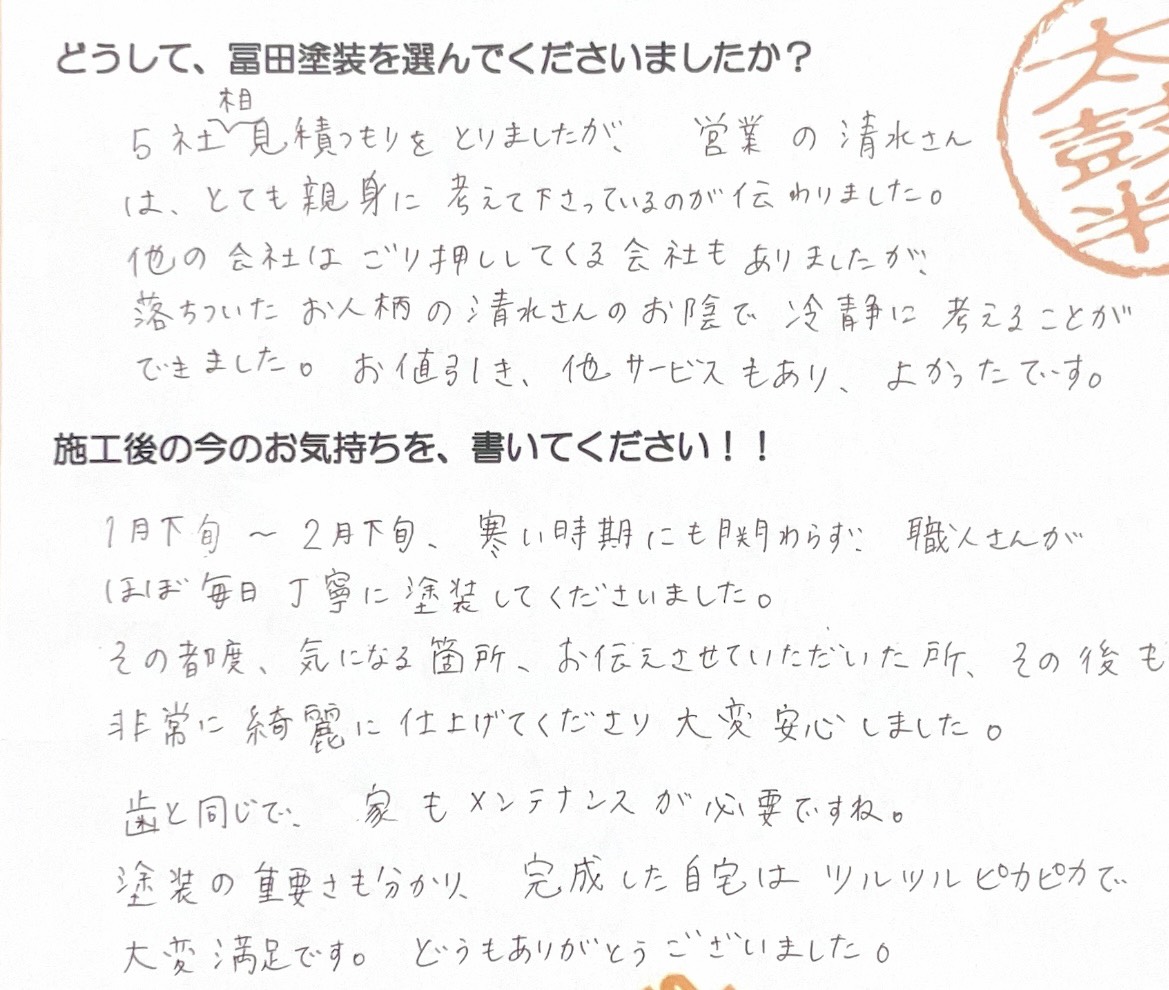 どうして、冨田塗装を選んでくださいましたか？
5社相見積つもりをとりましたが、営業の清水さん
は、とても親身に考えて下さっているのが伝わりました。
他の会社はごり押ししてくる会社もありましたが、
落ちついたお人柄の清水さんのお陰で冷静に考えることが
できました。お値引き、他サービスもあり、よかったです。
施工後の今のお気持ちを、書いてください！！
1月下旬～2月下旬、寒い時期にも関わらず、職人さんが
ほぼ毎日丁寧に塗装してくださいました。
その都度、気になる箇所、お伝えさせていただいた所、その後も
非常に綺麗に仕上げてくださり大変安心しました。
歯と同じで、家もメンテナンスが必要ですね。
塗装の重要さも分かり、完成した自宅はツルツルピカピカで
大変満足です。どうもありがとうございました。
大
鼓
半